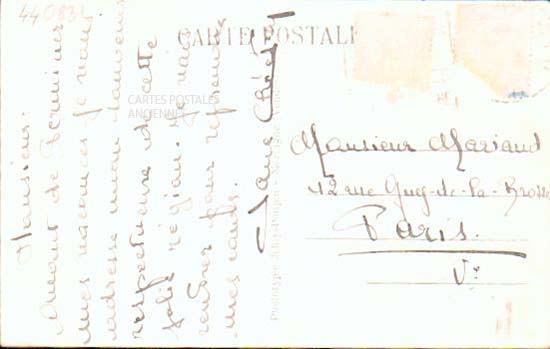 440834
CARTE POSTALE
CARTES POSTALES
ANCIENNES
Monsieur.
Avant de terminer
mes vacances je vous
adresse mon
respectueux de cette
jolie région. Je vais
rentrer pour reprendre
mes cours.
Monsieur Mariaud
12 rue Guy-de-la-Brosse
Paris.
Ve